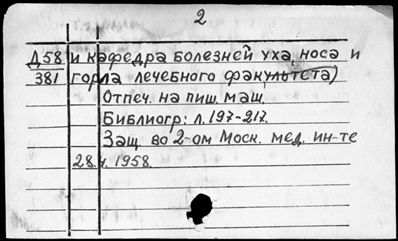 2
Д58 и кафедра болезней уха, носа и
381 горла лечебного факультета)
Отпеч. на пиш. маш.
Библиогр: л. 197-217.
Защ. во 2-ом Моск. мед. ин-те
1958.